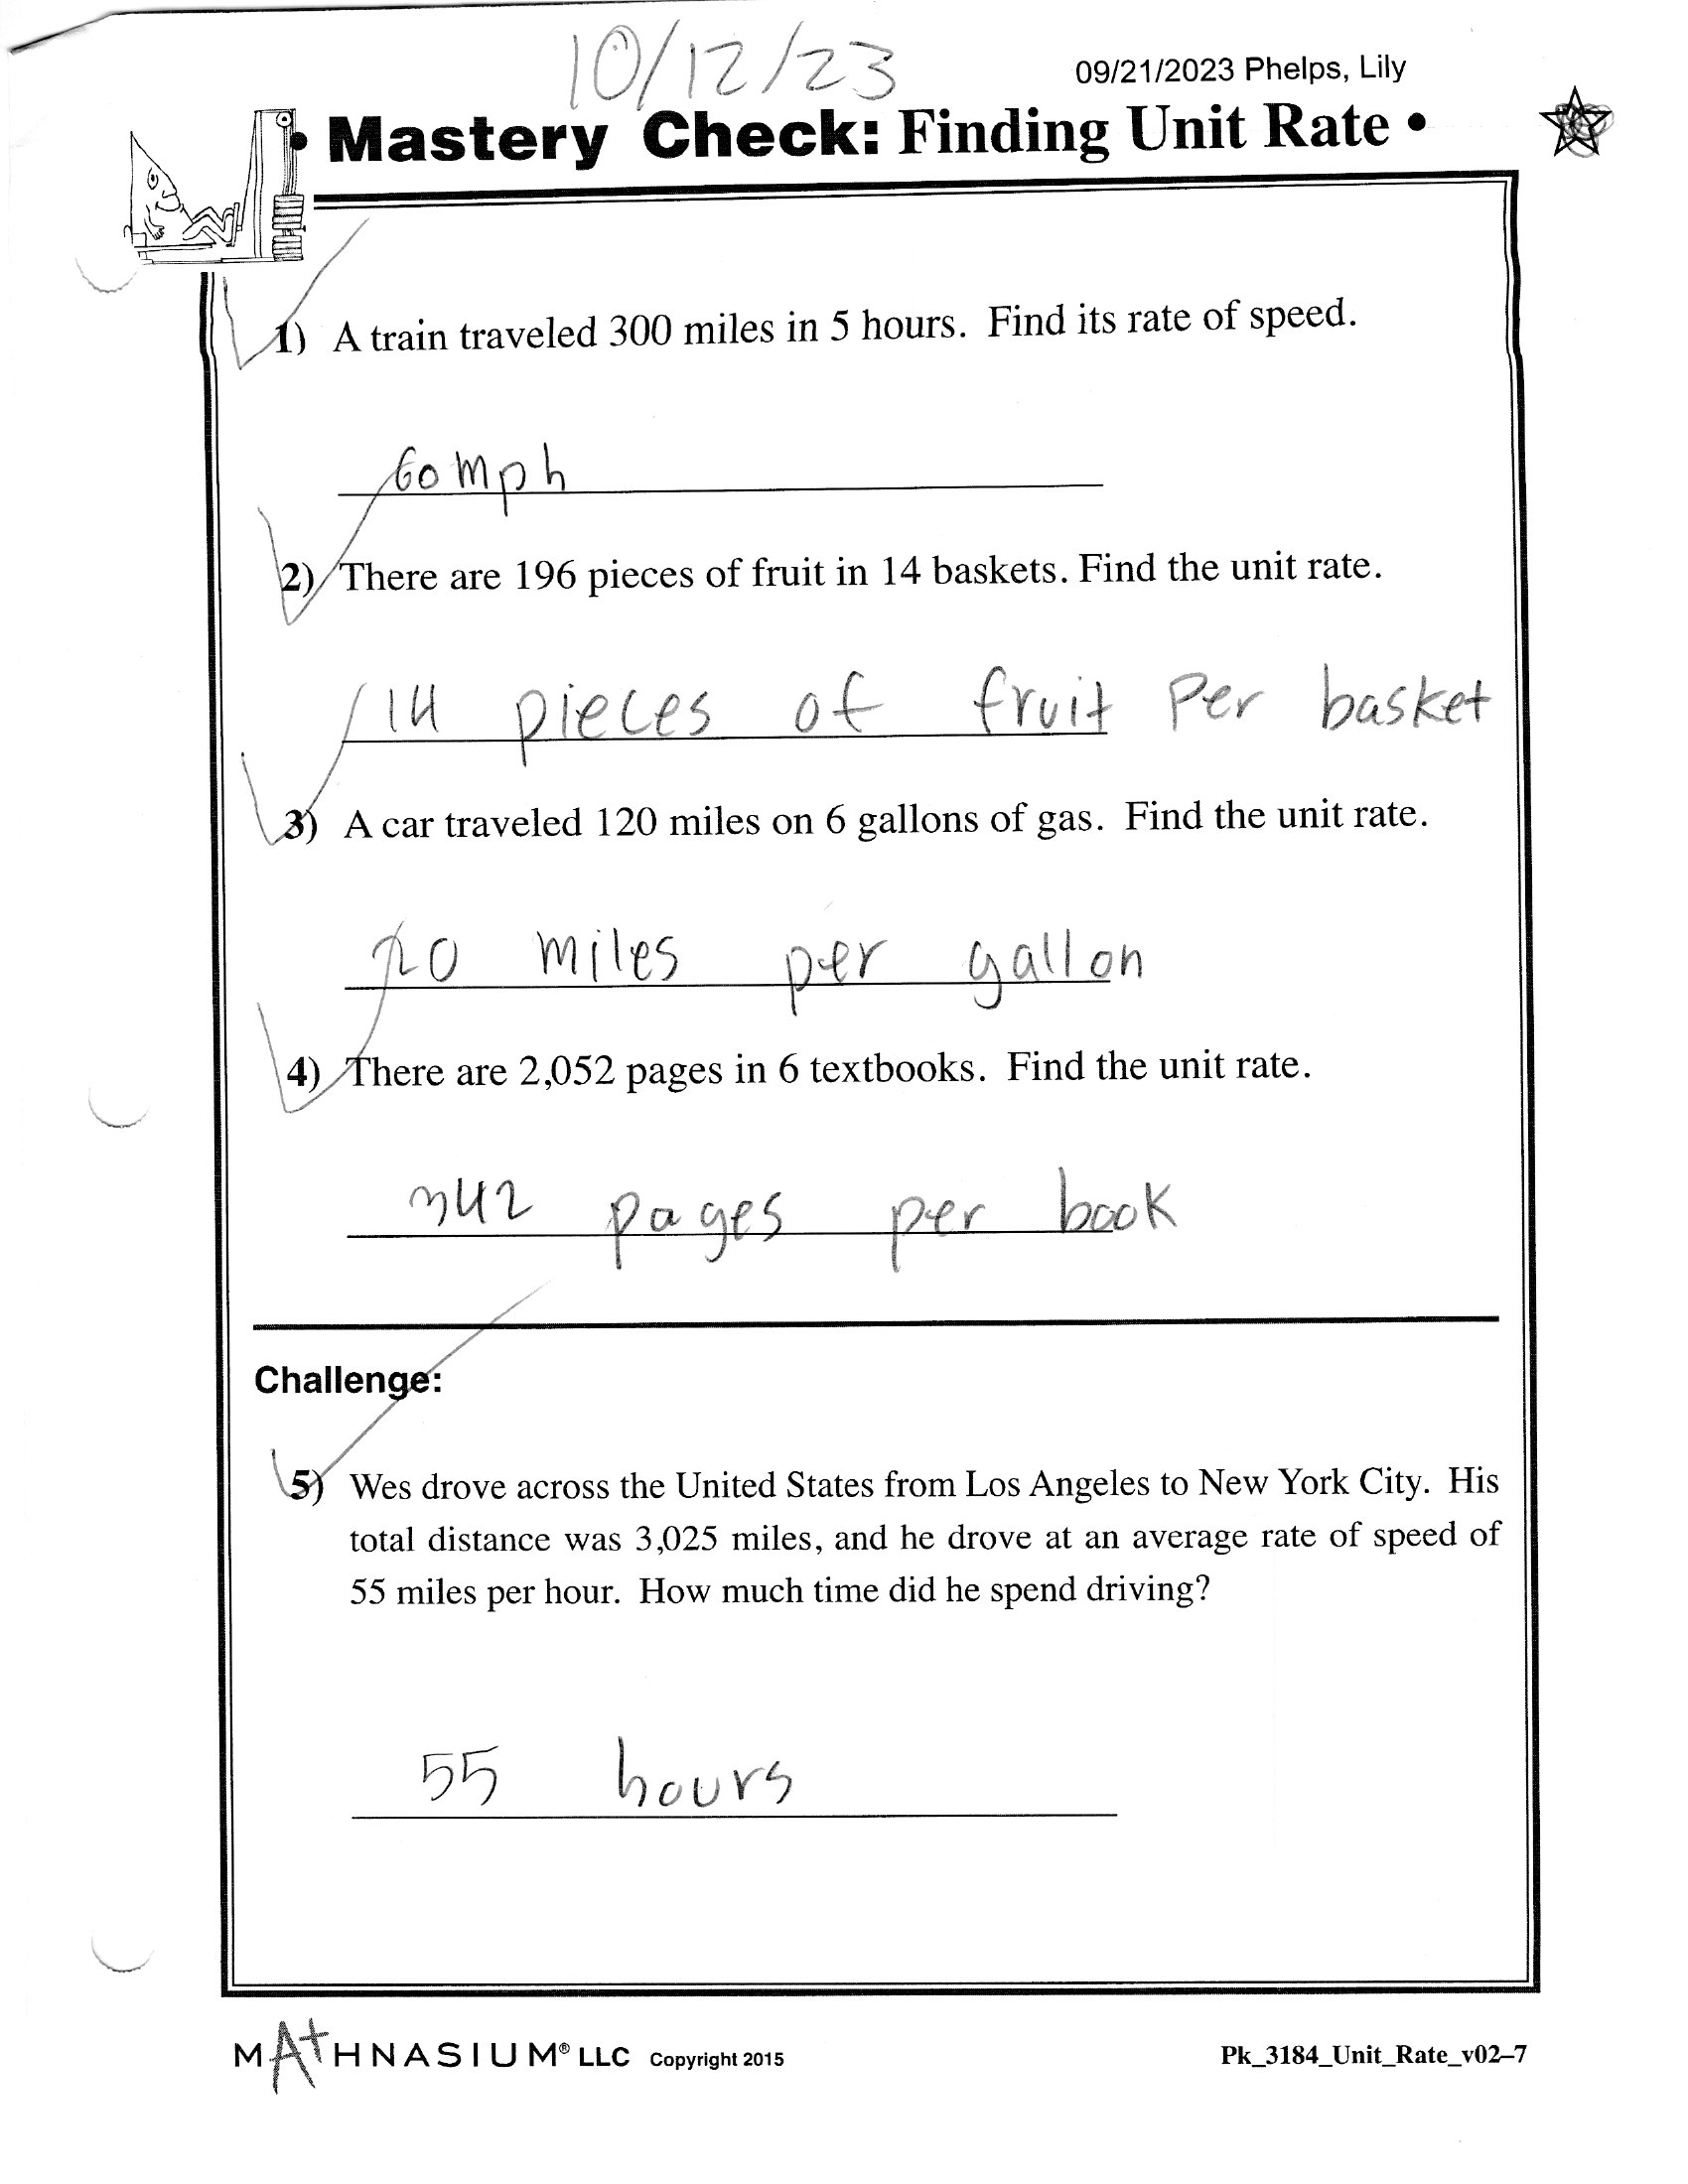 10/12/23
09/21/2023 Phelps, Lily
• Mastery Check: Finding Unit Rate •
1) A train traveled 300 miles in 5 hours. Find its rate of speed.
60 mph
2) There are 196 pieces of fruit in 14 baskets. Find the unit rate.
14 pieces of fruit Per basket
3) A car traveled 120 miles on 6 gallons of gas. Find the unit rate.
20 miles per gallon
4) There are 2,052 pages in 6 textbooks. Find the unit rate.
342 pages per book
Challenge:
5) Wes drove across the United States from Los Angeles to New York City. His
total distance was 3,025 miles, and he drove at an average rate of speed of
55 miles per hour. How much time did he spend driving?
55 hours
MATHNASIUM® LLC Copyright 2015
Pk_3184_Unit_Rate_v02–7